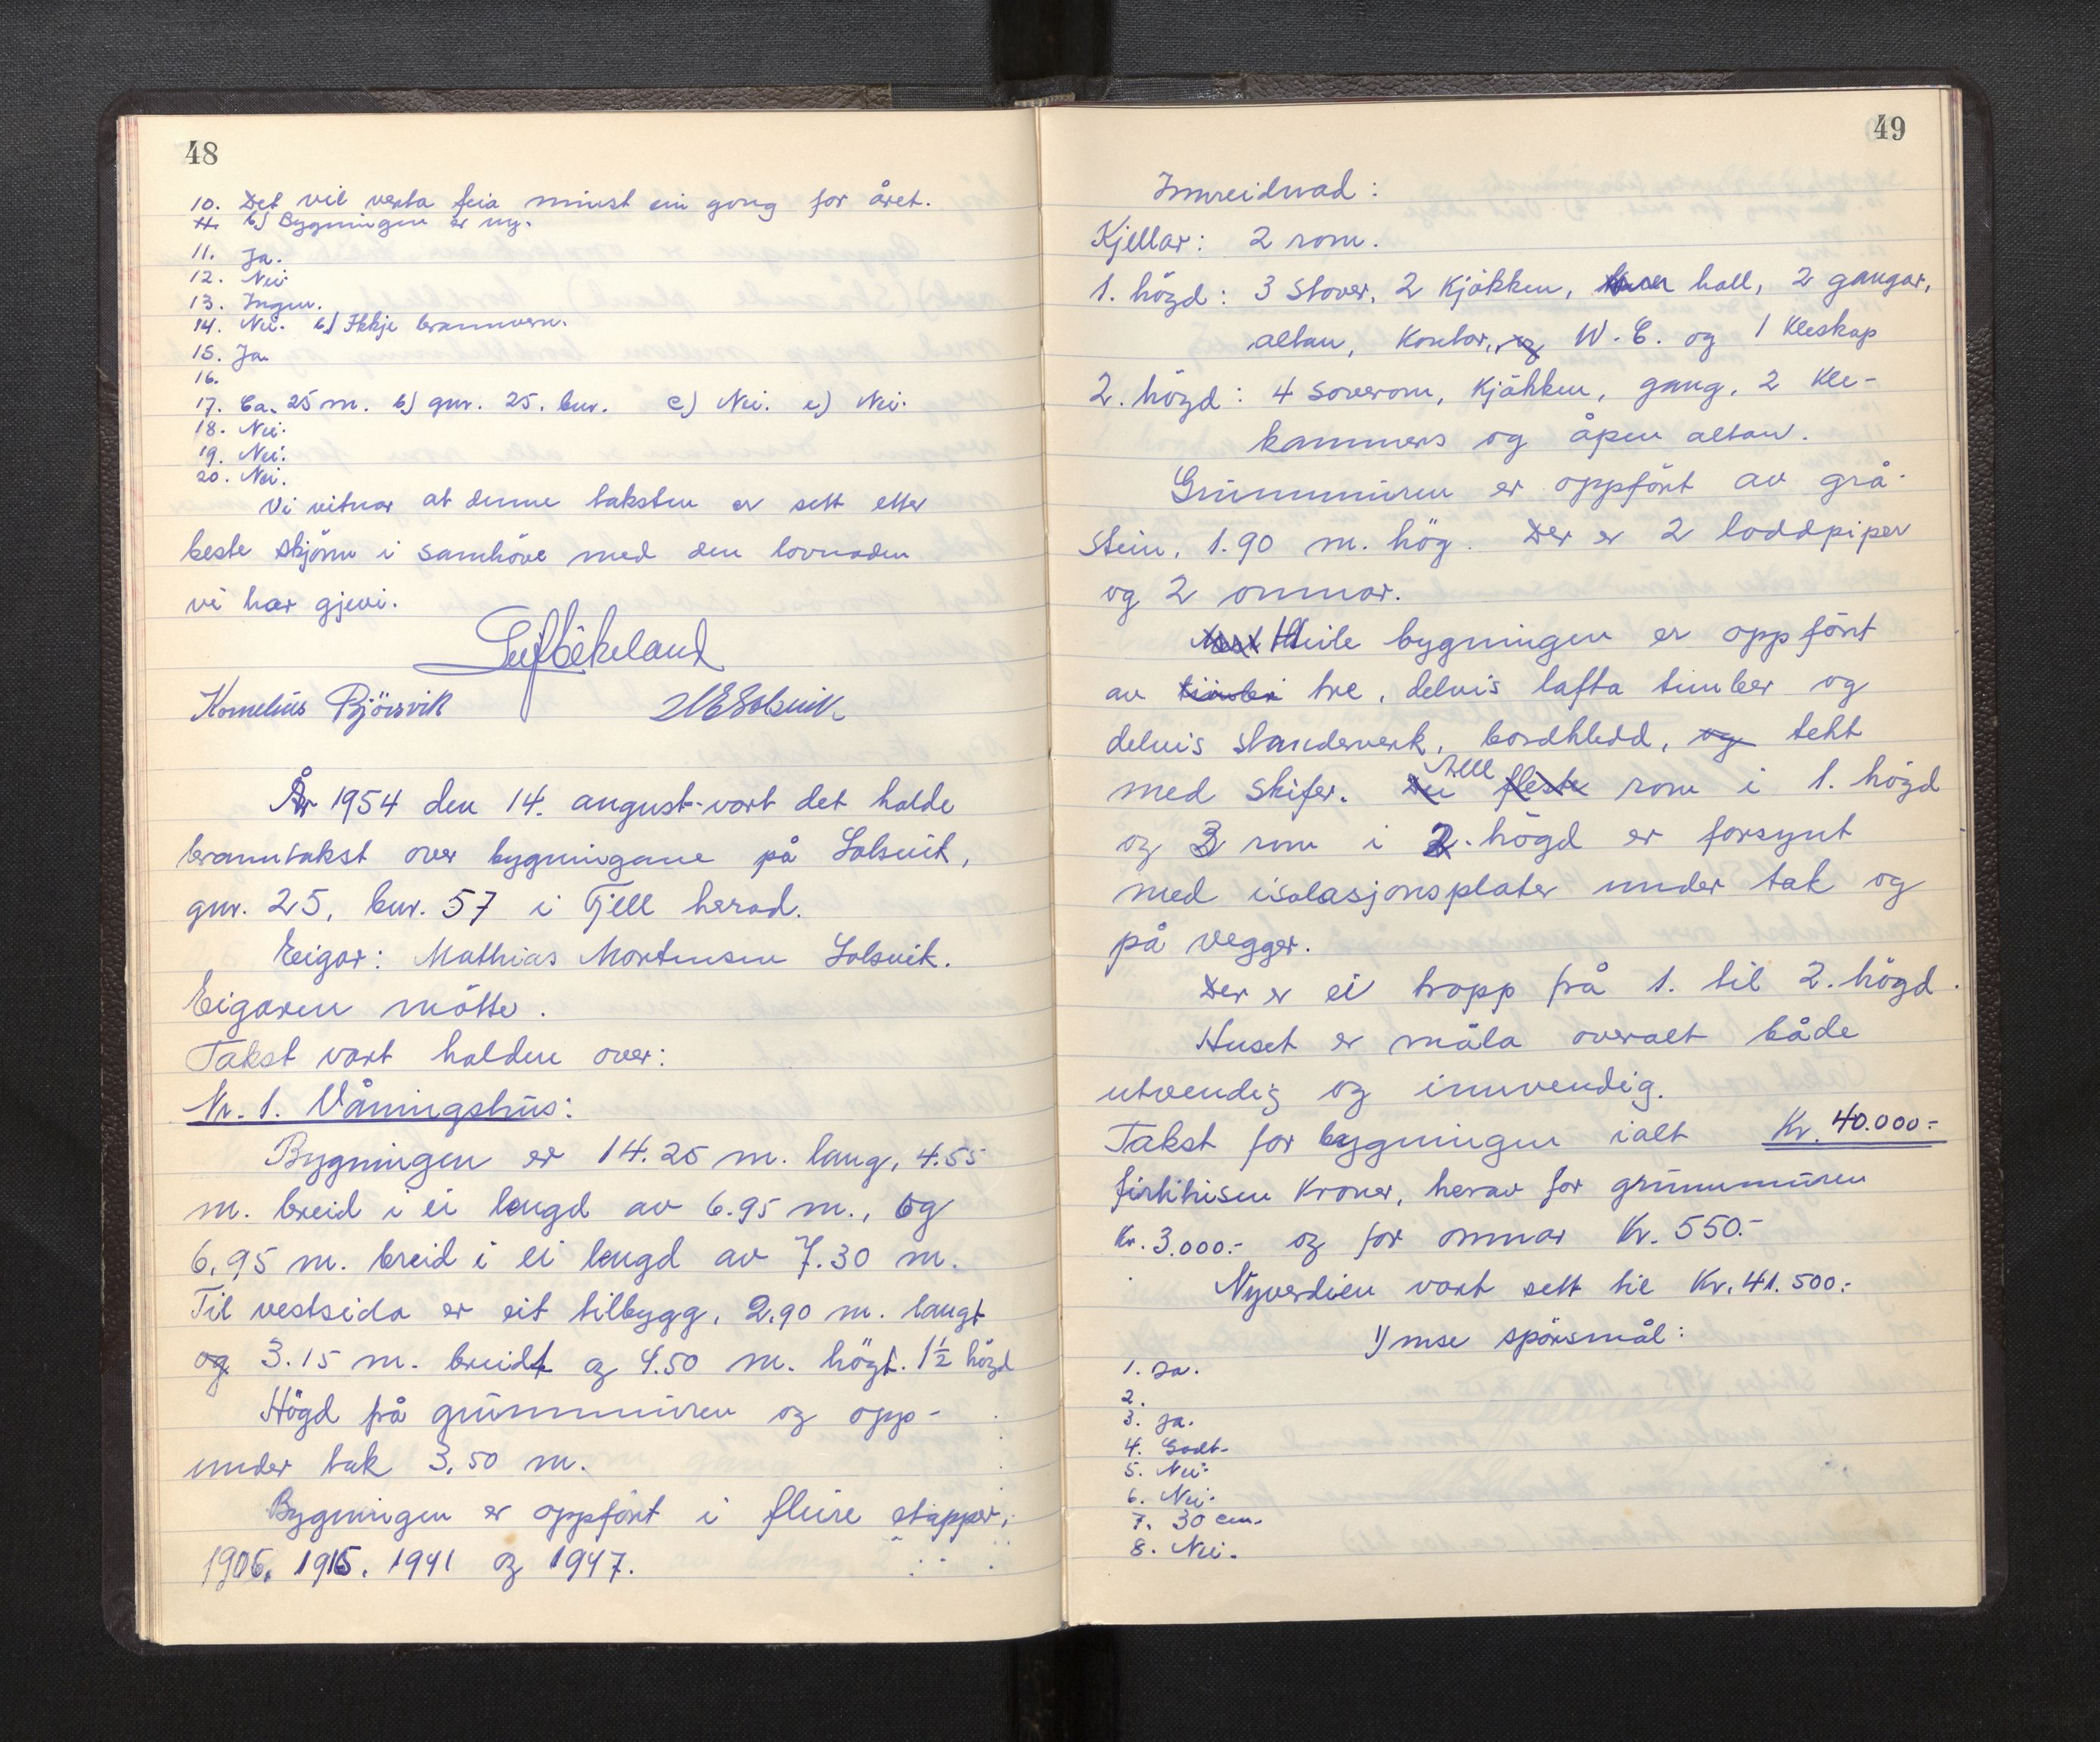 48
10. Det vil verta feia minst ein gong for året.
b) Bygningen er ny.
11. Ja.
12. Nei.
13. Ingen.
14. Nei. b) Ikkje brannvern.
15. Ja.
16.
17. Ca. 25 m. b) gnr. 25. bnr. c) Nei. e) Nei.
18. Nei.
19. Nei.
20. Nei.
Vi vitnar at denne taksten er sett etter
beste skjønn i samhöve med den lovnaden
vi har gjevi.
Kornelius Björsvik
År 1954 den 14. august vart det halde
branntakst over bygningane på Solsvik,
gnr. 25, bnr. 57 i Fjell herad.
Eigar: Mathias Mortensen Solsvik.
Eigaren mötte.
Takst vart halden over:
Nr. 1. Våningshus:
Bygningen er 14.25 m. lang, 4.55
m. breid i ei lengd av 6.95 m., og
6.95 m. breid i ei lengd av 7.30 m.
Til vestsida er eit tilbygg, 2.90 m. langt
og 3.15 m. breidt og 4.50 m. högt. 1½ högd
Högd frå grunnmuren og opp-
under tak 3.50 m.
Bygningen er oppfört i fleire etapper,
1906. 1915. 1941 og 1947.
49
Innreidnad:
Kjellar: 2 rom.
1. högd: 3 stover, 2 kjökken, hall, 2 gangar,
altan, kontor, og W.C. og 1 kleskap
2. högd: 4 soverom, kjökken, gang, 2 kle-
kammers og åpen altan.
Grunnmuren er oppfört av grå-
stein, 1.90 m. hög. Der er 2 loddpiper
og 2 omnar.
Heile bygningen er oppfört
av timber tre, delvis lafta timber og
delvis standeverk, bordkledd, og tekt
med skifer. Dei fleste Alle rom i 1. högd
og 3 rom i 2. högd er forsynt
med isolasjonsplater under tak og
på vegger.
Der er ei tropp frå 1. til 2. högd.
Huset er måla overalt både
utvendig og innvendig.
Takst for bygningen ialt Kr. 40.000:-
førtitusen kroner, herav for grunnmuren
Kr. 3.000.- og for omnar Kr. 550.-
Nyverdien vart sett til Kr. 41.500:-
Ymse spörsmål:
1. Ja.
2.
3. Ja.
4. Godt.
5. Nei.
6. Nei.
7. 30 cm.
8. Nei.